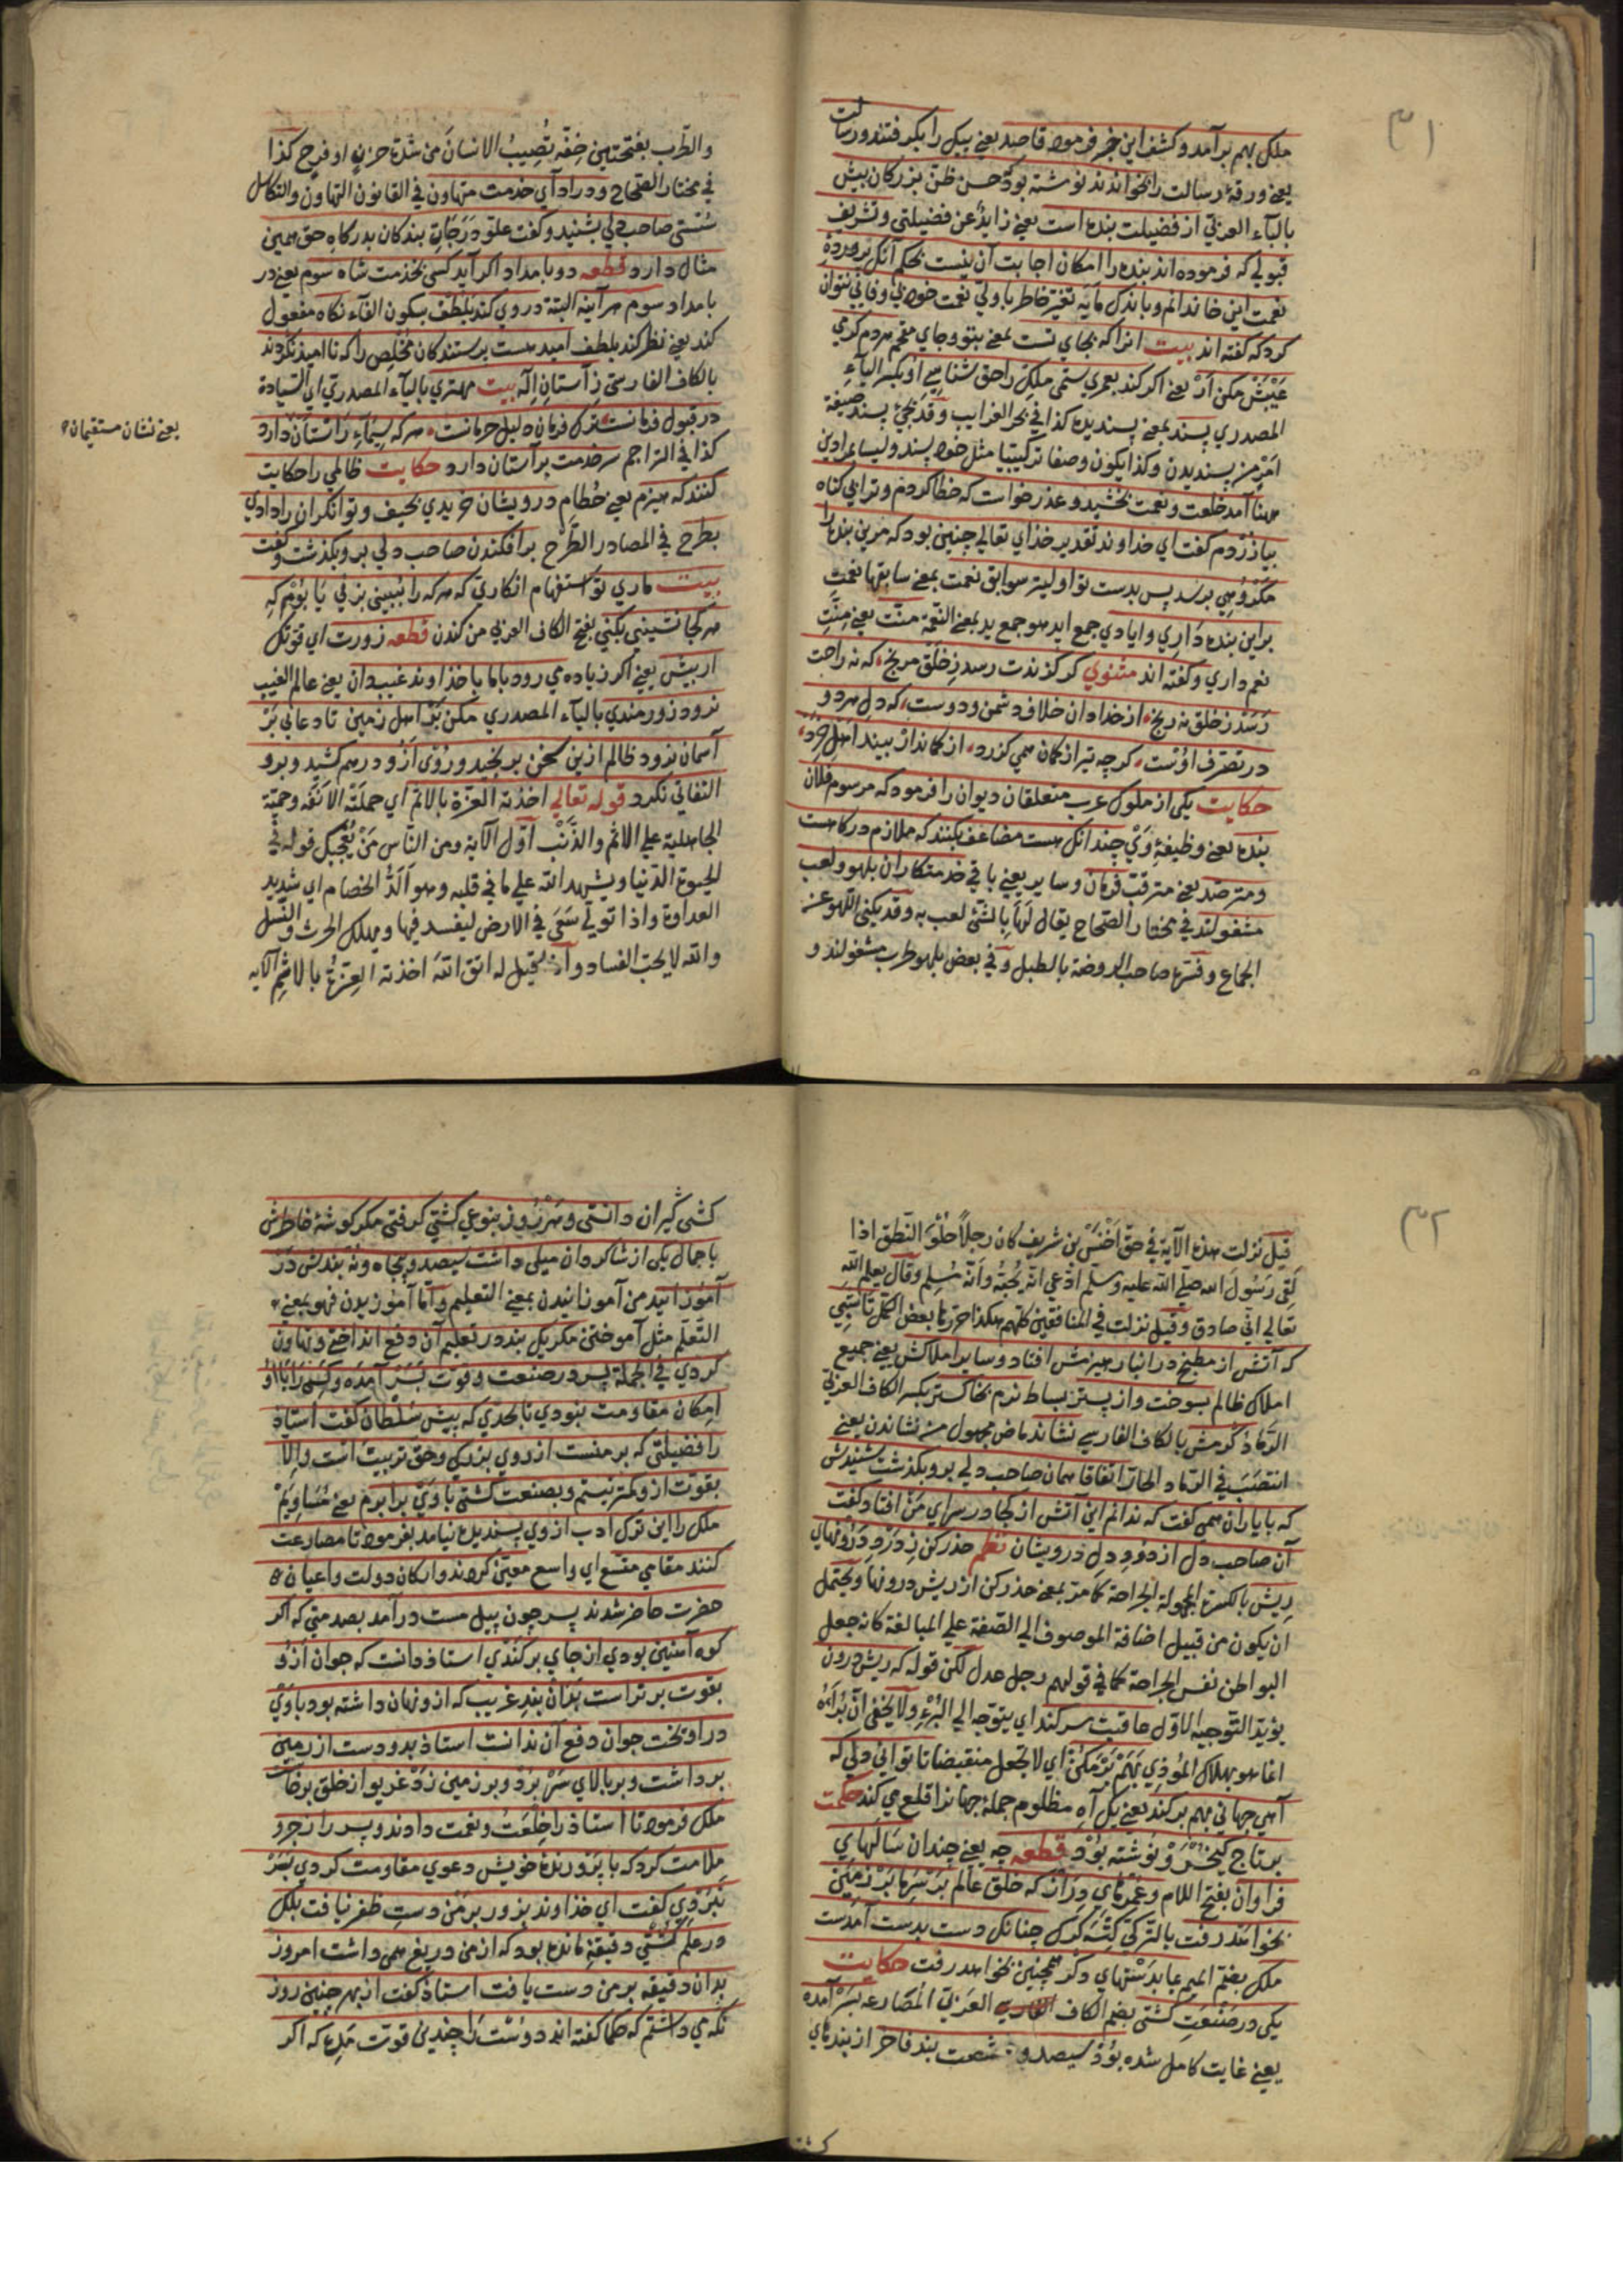 ٣١
ملک بهم برآمد و کشف این خبر فرمود قاصد یعنی پیک را بکرفتند و رسالت
یعنی ورقهٔ رسالت را بخواندند نوشته بود که حسن ظن بزرکان بیش
بالباء العربی از فضیلت بنده است یعنی زاید عن فضیلتی و تشریف
قبولی که فرموده اند بنده را امکان اجابت آن نیست بحکم آنک پروردهٔ
نعمت این خاندانم و باندک مایه تغیر خاطر با ولی نعمت خود بی وفایی نتوان
کرد که کفته اند بیت انرا که بجای تست بمعنی بتو و جای مقحم هردم کرمی
عیبش مکن ار یعنی اکر کند بعمری ستمی ملک را حق شناسی او بکسر الیاء
المصدری پسند بمعنی پسندیده کذا فی بحر الغرایب و قد یجئ پسند صیغة
امر من پسندیدن و کذا یکون وصفا ترکیبیا مثل خود پسند و لیسا بمرادین
ههنا آمد خلعت و نعمت بخشید و عذر خواست که خطا کردم و ترا بی کناه
بیازردم کفت ای خداوند تقدیر خدای تعالی چنین بود که مرین بنده را
مکروهی برسد پس بدست تو اولیتر سوابق نعمت بمعنی سابقها نعمت
براین بنده داری و ایادی جمع اید هو جمع ید بمعنی النعمة منت یعنی منت
نعم داری و کفته اند مثنوی کر کزندت رسد ز خلق مرنج که نه راحت
رسد ز خلق نه رنج از خدا دان خلاف دشمن و دوست که دل هردو
در تصرف اوست کرچه تیر از کمان همی کذرد از کماندار بیند اهل خرد
حکایت یکی از ملوک عرب متعلقان دیوان را فرمود که مرسوم فلان
بنده یعنی وظیفهٔ وی چندانک هست مضاعف بکنند که ملازم درکاهست
و مترصد یعنی مترقب فرمان و سایر یعنی باقی خدمتکاران بلهو و لعب
مشغولند فی مختار الصحاح یقال لها بالشئ لعب به و قد یکنی اللهو عن
الجماع و فسرها صاحب الروضة بالطبل و فی بعض بلهو طرب مشغولند و
والطرب بفتحتین خفة تصیب الانسان من شدة حزن او فرح کذا
فی مختار الصحاح و در ادای خدمت متهاون فی القانون التهاون والتکاسل
سستی صاحب دلی بشنید و کفت علو درجات بندکان بدرکاه حق همین
مثال دارد قطعه دو بامداد اکر آید کسی بخدمت شاه سوم یعنی در
بامداد سوم هرآینه البتة دروی کند بلطف بسکون الفاء نکاه مفعول
کند یعنی نظر کند بلطف امید هست پرستندکان مخلص را که ناامید نکردند
بالکاف الفارسی ز آستان اله بیت مهتری بالیاء المصدری ای السیادة
در قبول فرمانست ترک فرمان دلیل حرمانست هرکه سیمای راستان دارد
یعنی نشان مستقیمان
کذا فی التراجم سر خدمت بر آستان دارد حکایت ظالمی را حکایت
کنند که هیزم یعنی حطام درویشان خریدی بحیف و توانکران را دادی
بطرح فی المصادر الطرح برافکندن صاحب دلی برو بکذشت و کفت
بیت ماری تو استفهام انکاری که هرکه را ببینی بزنی یا بوم که
هرکجا نشینی بکنی بفتح الکاف العربی من کندن قطعه زورت ای قوتک
ار پیش یعنی اکر زیاده می رود باما با خداوند غیب دان یعنی عالم الغیب
نرود زورمندی بالیاء المصدری مکن بر اهل زمین تا دعایی بر
آسمان نرود ظالم ازین سخن برنجید و روی ازو درهم کشید و برو
التفاتی نکرد قوله تعالی اخذته العزة بالاثم ای حملته الانفه و حمیة
الجاهلیة علی الاثم والذنب اول الآیة ومن الناس من یعجبک قوله فی
الحیوة الدنیا ویشهد الله علی ما فی قلبه وهو الد الخصام ای شدید
العداوة واذا تولی سعی فی الارض لیفسد فیها ویهلک الحرث والنسل
والله لا یحب الفساد واذا قیل له اتق الله اخذته العزة بالاثم الآیه
٣٢
قیل نزلت هذه الآیة فی حق اخنس بن شریف کان رجلا حلو النطق اذا
لقی رسول الله صلی الله علیه وسلم ادعی انه یحبه وانه مسلم وقال یعلم الله
تعالی انی صادق وقیل نزلت فی المنافقین کلهم هکذا حررها بعض الکمل تا شبی
که آتش از مطبخ در انبار هیزمش افتاد و سایر املاکش یعنی جمیع
املاک ظالم بسوخت و از بستر بساط نرم بخاکستر بکسر الکاف العربی
الرماد کرمش بالکاف الفارسی نشاند ماض مجهول من نشاندن یعنی
انتصب فی الرماد الحار اتفاقا همان صاحب دلی برو بکذشت شنیدش
که با یاران همی کفت که ندانم این آتش از کجا در سرای من افتاد کفت
آن صاحب دل از دود دل درویشان نظم حذر کن ز درد درونهای
ریش بالکسرة المجهولة الجراحة کما مر بمعنی حذر کن از ریش درونها و یحتمل
ان یکون من قبیل اضافة الموصوف الی الصفة علی المبالغة کانه جعل
البواطن نفس الجراحة کما فی قولهم رجل عدل لکن قوله که ریش درون
یؤید التوجیه الاول عاقبت سر کند ای یتوجه الی البرء ولا یخفی ان برأه
انما هو بهلاک الموذی بهم برمکن ای لا تجعل منقبضا تا توانی دلی که
آهی جهانی بهم برکند یعنی یک آه مظلوم جملهٔ جهانرا قلع می کند حکمت
برتاج کیخسرو نوشته بود قطعه چه یعنی چندان سالهای
فراوان بفتح اللام و عمرهای دراز که خلق عالم بر سرها بر زمین
بخواهد رفت بالترکی کتسه کرک چنانک دست بدست آمدست
ملک بضم المیم بما بدستهای دکر همچنین بخواهد رفت حکایت
یکی در صنعت کشتی بضم الکاف العربی المصارعه بسر آمده
یعنی غایت کامل شده بود سیصد و شصت بند فاخر از بندهای
کشتی
کشتی کیران دانستی و هر روز بنوعی کشتی کرفتی مکر کوشهٔ خاطرش
با جمال یکی از شاکردان میلی داشت سیصد و پنجاه و نه بندش در
آموزانید من آموزانیدن بمعنی التعلیم واما آموزیدن فهو بمعنی
التعلم مثل آموختن مکر یک بند در تعلیم آن دفع انداختی و تهاون
کردی فی الجمله پسر در صنعت و قوت بسر آمده و کسی را با او
امکان مقاومت نبودی تا بحدی که پیش سلطان کفت استاد
را فضیلتی که بر منست از روی بزرکی و حق تربیت است والا
بقوت ازو کمتر نیستم و بصنعت کشتی با وی برابرم یعنی مساویم
ملک را این ترک ادب از وی پسندیده نیامد بفرمود تا مصارعت
کنند مقامی متسع ای واسع معین کردند و ارکان دولت و اعیان
حضرت حاضر شدند پسر چون پیل مست درآمد بصدمتی که اکر
کوه آهنین بودی از جای برکندی استاد دانست که جوان ازو
بقوت برترست بدان بند غریب که ازو نهان داشته بود با وی
درآویخت جوان دفع آن ندانست استاد بدو دست از زمین
برداشت و بر بالای سر برد و بر زمین زد غریو از خلق برخاست
ملک فرمود تا استاد را خلعت و نعمت دادند و پسر را زجر و
ملامت کرد که با پرورندهٔ خویش دعوی مقاومت کردی بسر
نبردی کفت ای خداوند بزور بر من دست ظفر نیافت بلک
در علم کشتی دقیقهٔ مانده بود که از من دریغ همی داشت امروز
بدان دقیقه بر من دست یافت استاد کفت از بهر چنین روز
نکه می داشتم که حکما کفته اند دوست را چندین قوت مده که اکر